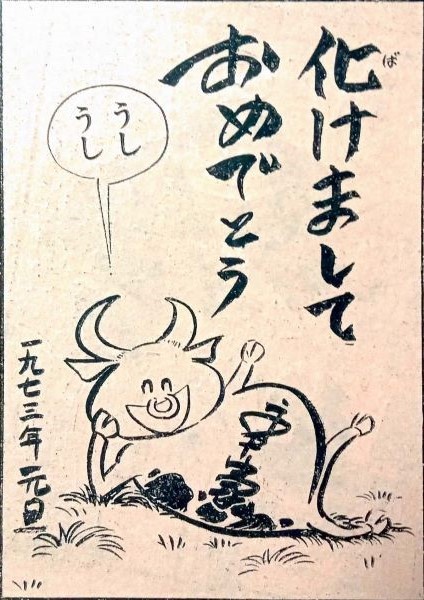 化けまして
ば
おめでとう
うし
うし
一九七三年 元旦